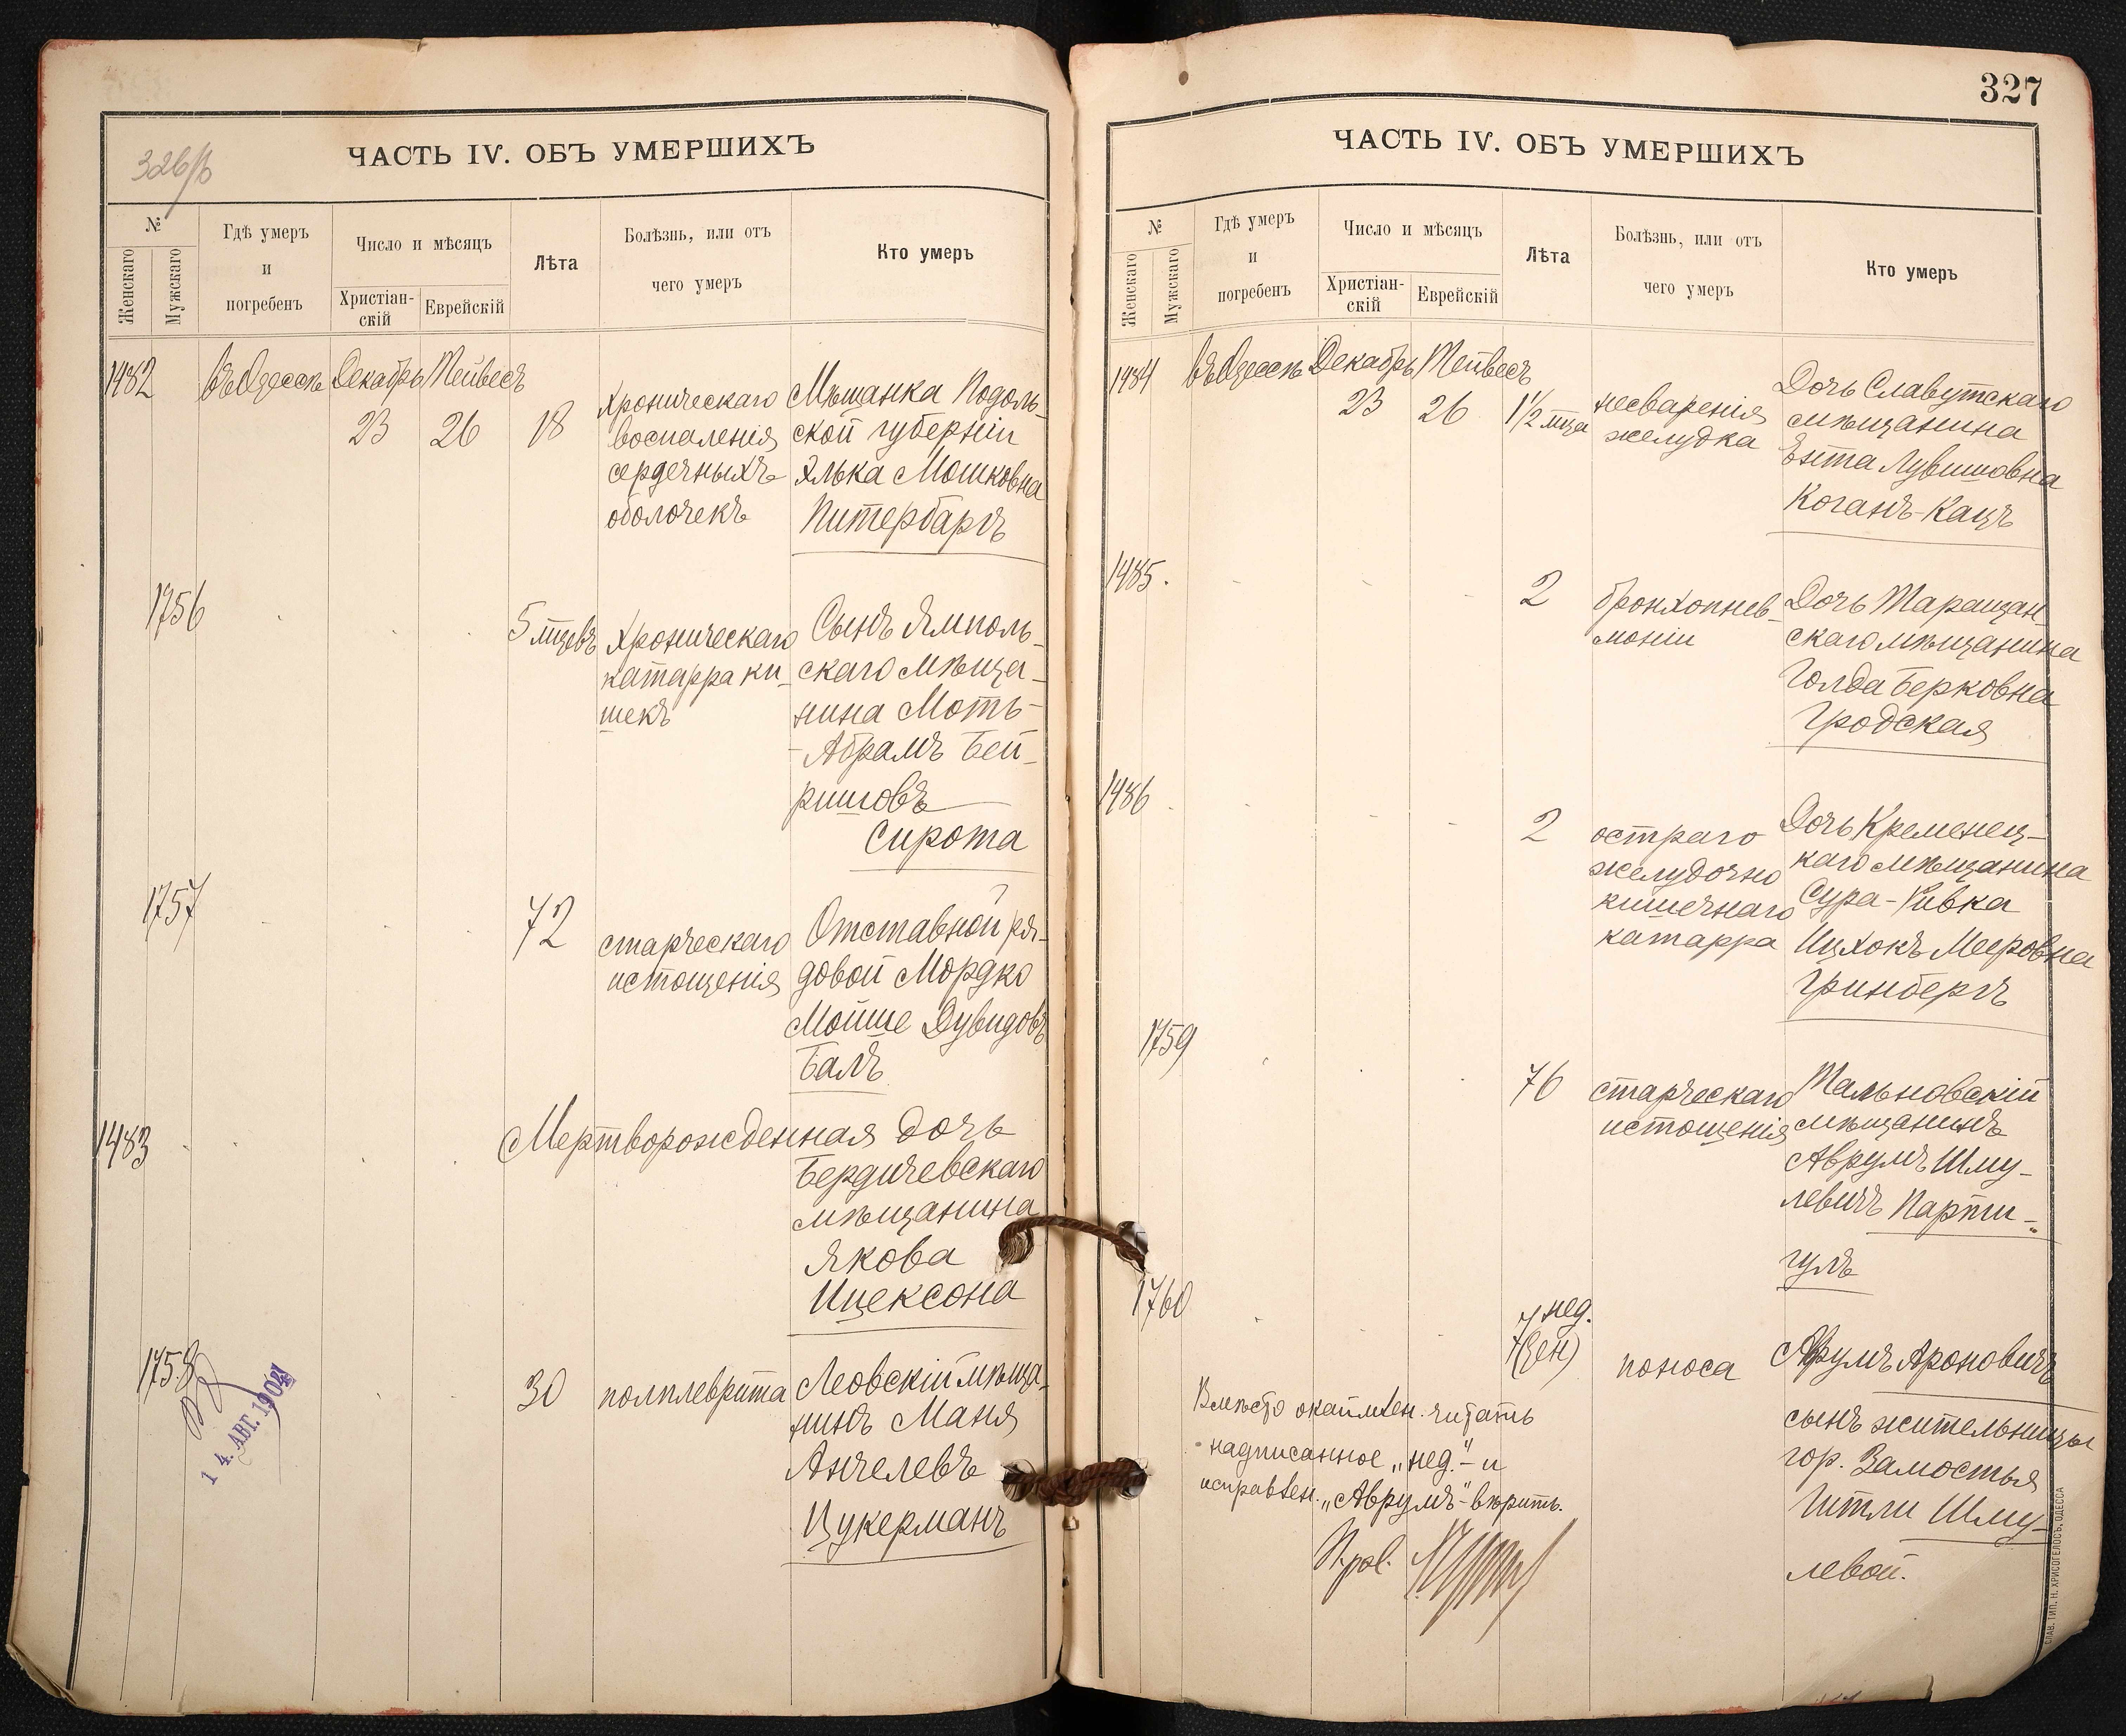 326/в
ЧАСТЬ IV. ОБЪ УМЕРШИХЪ
№
Женскаго
Мужскаго
Гдѣ умеръ
и
погребенъ
Число и мѣсяцъ
Христіан-
скій
Еврейскій
Лѣта
Болѣзнь, или отъ
чего умеръ
Кто умеръ
1482 въ Одессѣ Декабрь Тейвесъ
23 26 18
Хроническаго
воспаленія
сердечныхъ
оболочекъ
Мѣщанка Подоль-
ской губерніи
Элька Мошковна
Питербаргъ
1756
5 мцевъ
Хроническаго
катарра ки-
шекъ
Сынъ Ямполь-
скаго мѣща-
нина Моть-
-Абрамъ Бей-
ришовъ
Сирота
1757
72
старческаго
истощенія
Отставной ря-
довой Мордко
Мойше Дувидовъ
Балъ
1483
Мертворожденная дочь
Бердичевскаго
мѣщанина
Якова
Ицексона
1758
30
полплеврита
Леовскій мѣща-
нинъ Маня
Анчелевъ
Цукерманъ
1 4. АВГ. 1904
327
ЧАСТЬ IV. ОБЪ УМЕРШИХЪ
№
Женскаго
Мужскаго
Гдѣ умеръ
и
погребенъ
Число и мѣсяцъ
Христіан-
скій
Еврейскій
Лѣта
Болѣзнь, или отъ
чего умеръ
Кто умеръ
1484 въ Одессѣ Декабрь Тейвесъ
23 26 1½ мца
несваренія
желудка
Дочь Славутскаго
мѣщанина
Ента Лувишовна
Коганъ-Кацъ
1485.
2
бронхопнев-
моніи
Дочь Таращан-
скаго мѣщанина
Голда Берковна
Гродская
1486
2
остраго
желудочно
кишечнаго
катарра
Дочь Кременец-
каго мѣщанина
Сура-Ривка
Ицхокъ Мееровна
Гринбергъ
1759
76
старческаго
истощенія
Тальновскій
мѣщанинъ
Аврумъ Шму-
левичъ Парти-
гулъ
1760
7 нед.
7 (ден)
поноса
Аврумъ Ароновичъ
сынъ жительницы
гор. Замостья
Гитли Шму-
левой.
Вмѣсто окаймлен. читать
надписанное „нед.“ - и
исправлен. „Аврумъ“ - вѣрить.
СЛАВ. ТИП. Н. ХРИСОГЕЛОСЪ, ОДЕССА